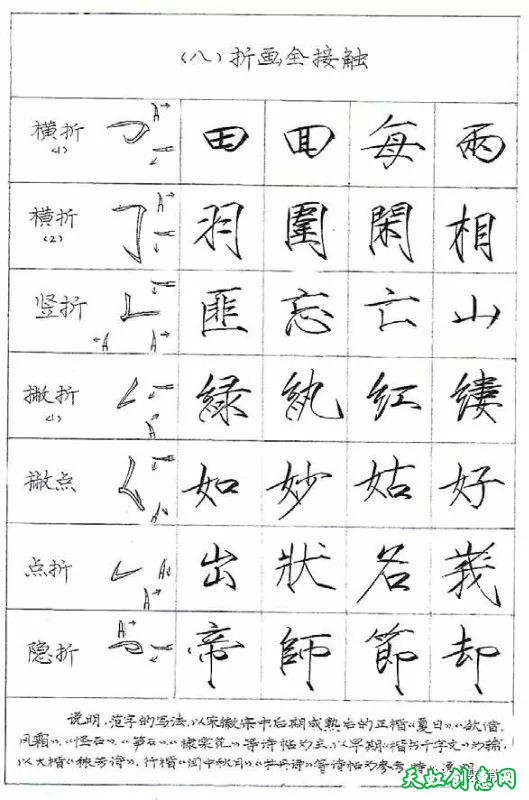 (八)折画全接触
横折 田 回 每 两
(1)
横折 羽 圍 閑 相
(2)
竖折 匪 忘 亡 山
撇折 緑 紈 红 縷
(1)
撇点 如 妙 姑 好
点折 出 狀 名 義
隐折 帝 師 節 却
说明,范字的写法,以宋徽宗中后期成熟后的正楷《夏日》、《欲借
风霜》、《怪石》、《笋石》、《棣棠花》等诗帖为主,以早期《楷书千字文》为辅,
以大楷《秾芳诗》,行楷《闰中秋月》《牡丹诗》等诗帖为参考
天虹创意网
www.rainbowcn.com